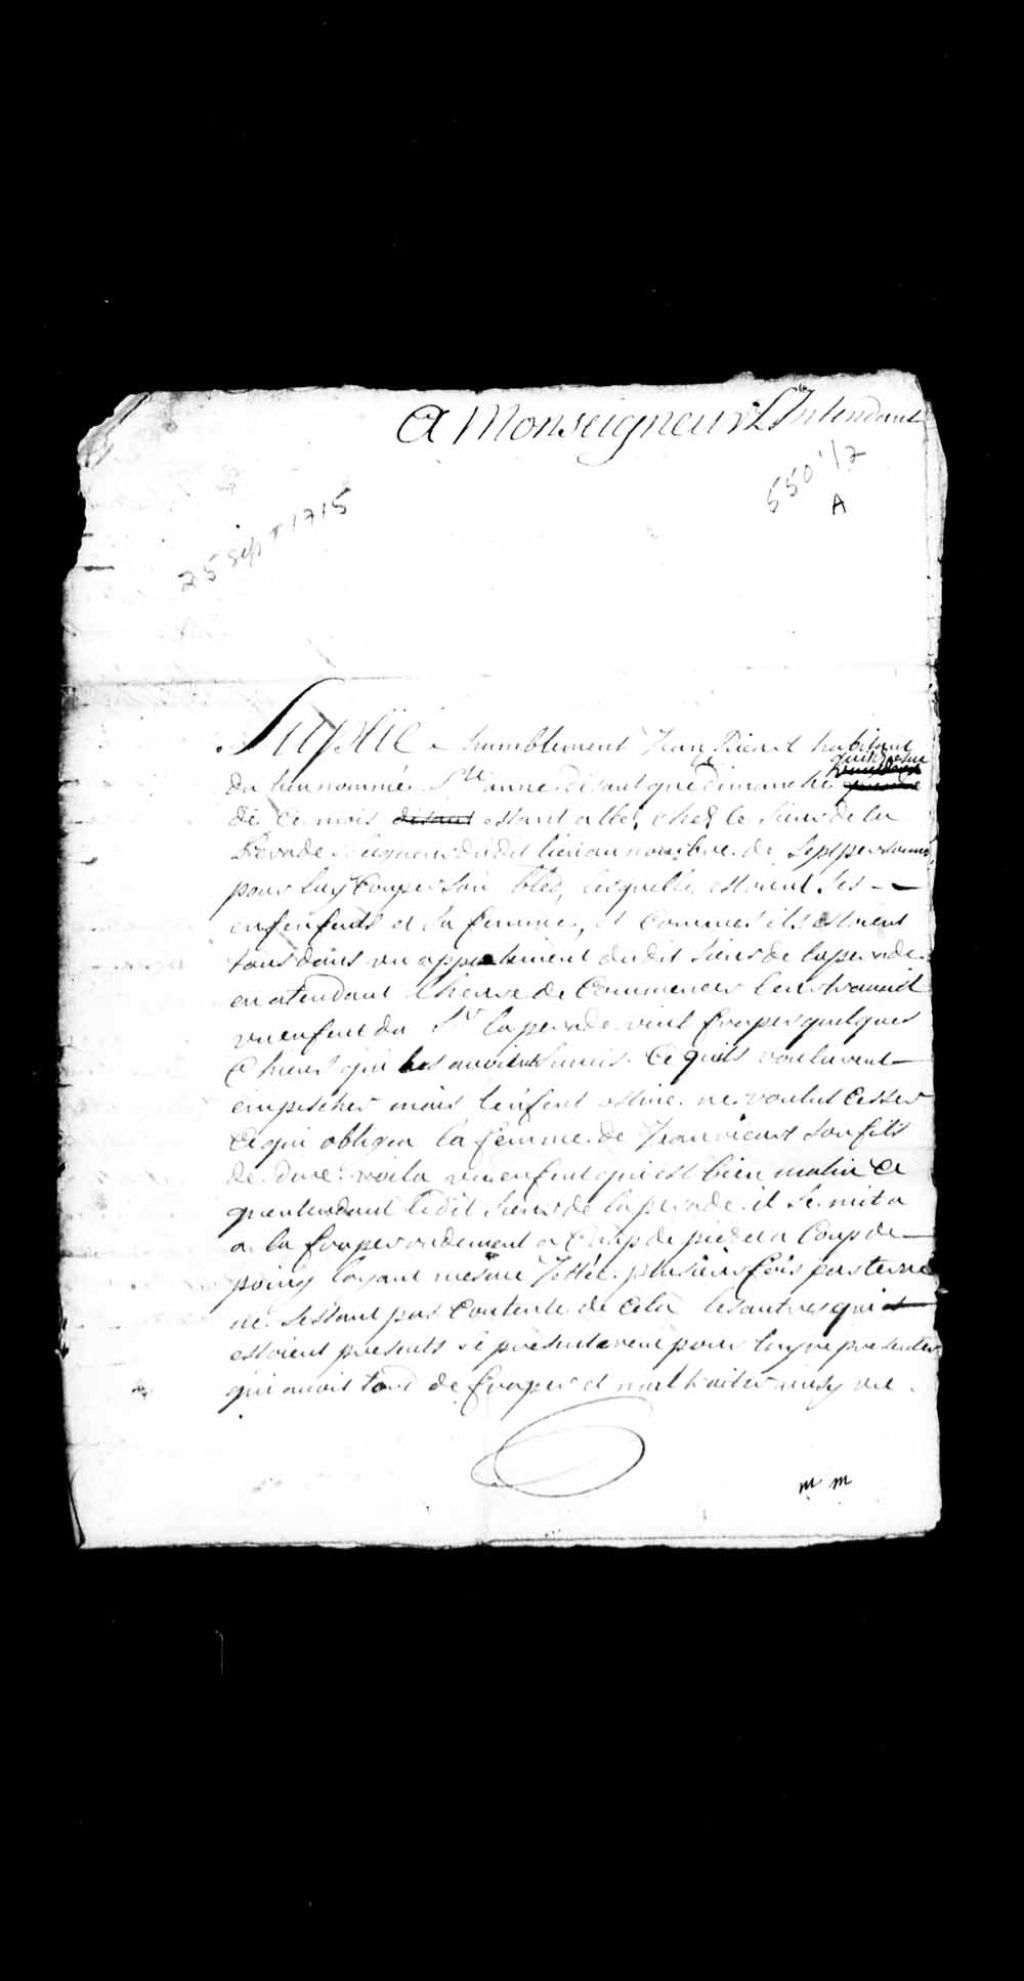 A Monseigneur L'Intendant
550 1/2
A
25 sept 1715
Suplie humblement Jean Ricart habitant
du lieu nommé Ste anne disant que dimanche
de ce mois disant estant allé, chez le sieur de la
Perade seigneur dudit lieu au nombre de sept personnes
pour luy Couper son bled, lesquelle estoient ses
enfenfants et sa femme, et Commes ils estoient
tous dans un appartement dudit sieur de laperade
en atendant lheure de Commencer leur travail
un enfent du Sr laperade vint fraper quelques
Chiens qui les avoient suivis. Ce quils voulurent
empescher mais lenfent ostiné ne voulut Cesser
Ce qui obligea la femme de Jean ricart son fils
de dire voila un enfent qui est bien malin Ce
quentendant ledit sieur de laperade il se mit a
a la fraper rudement a Coup de pied et a Coup de
poing layant mesme Jettée plusieurs fois par terre
ne sestant pas Contente de Cela les autres qui
estoient presents se presenterent pour luy representer
quil avoit tord de fraper et maltraiter ainsy une
m m